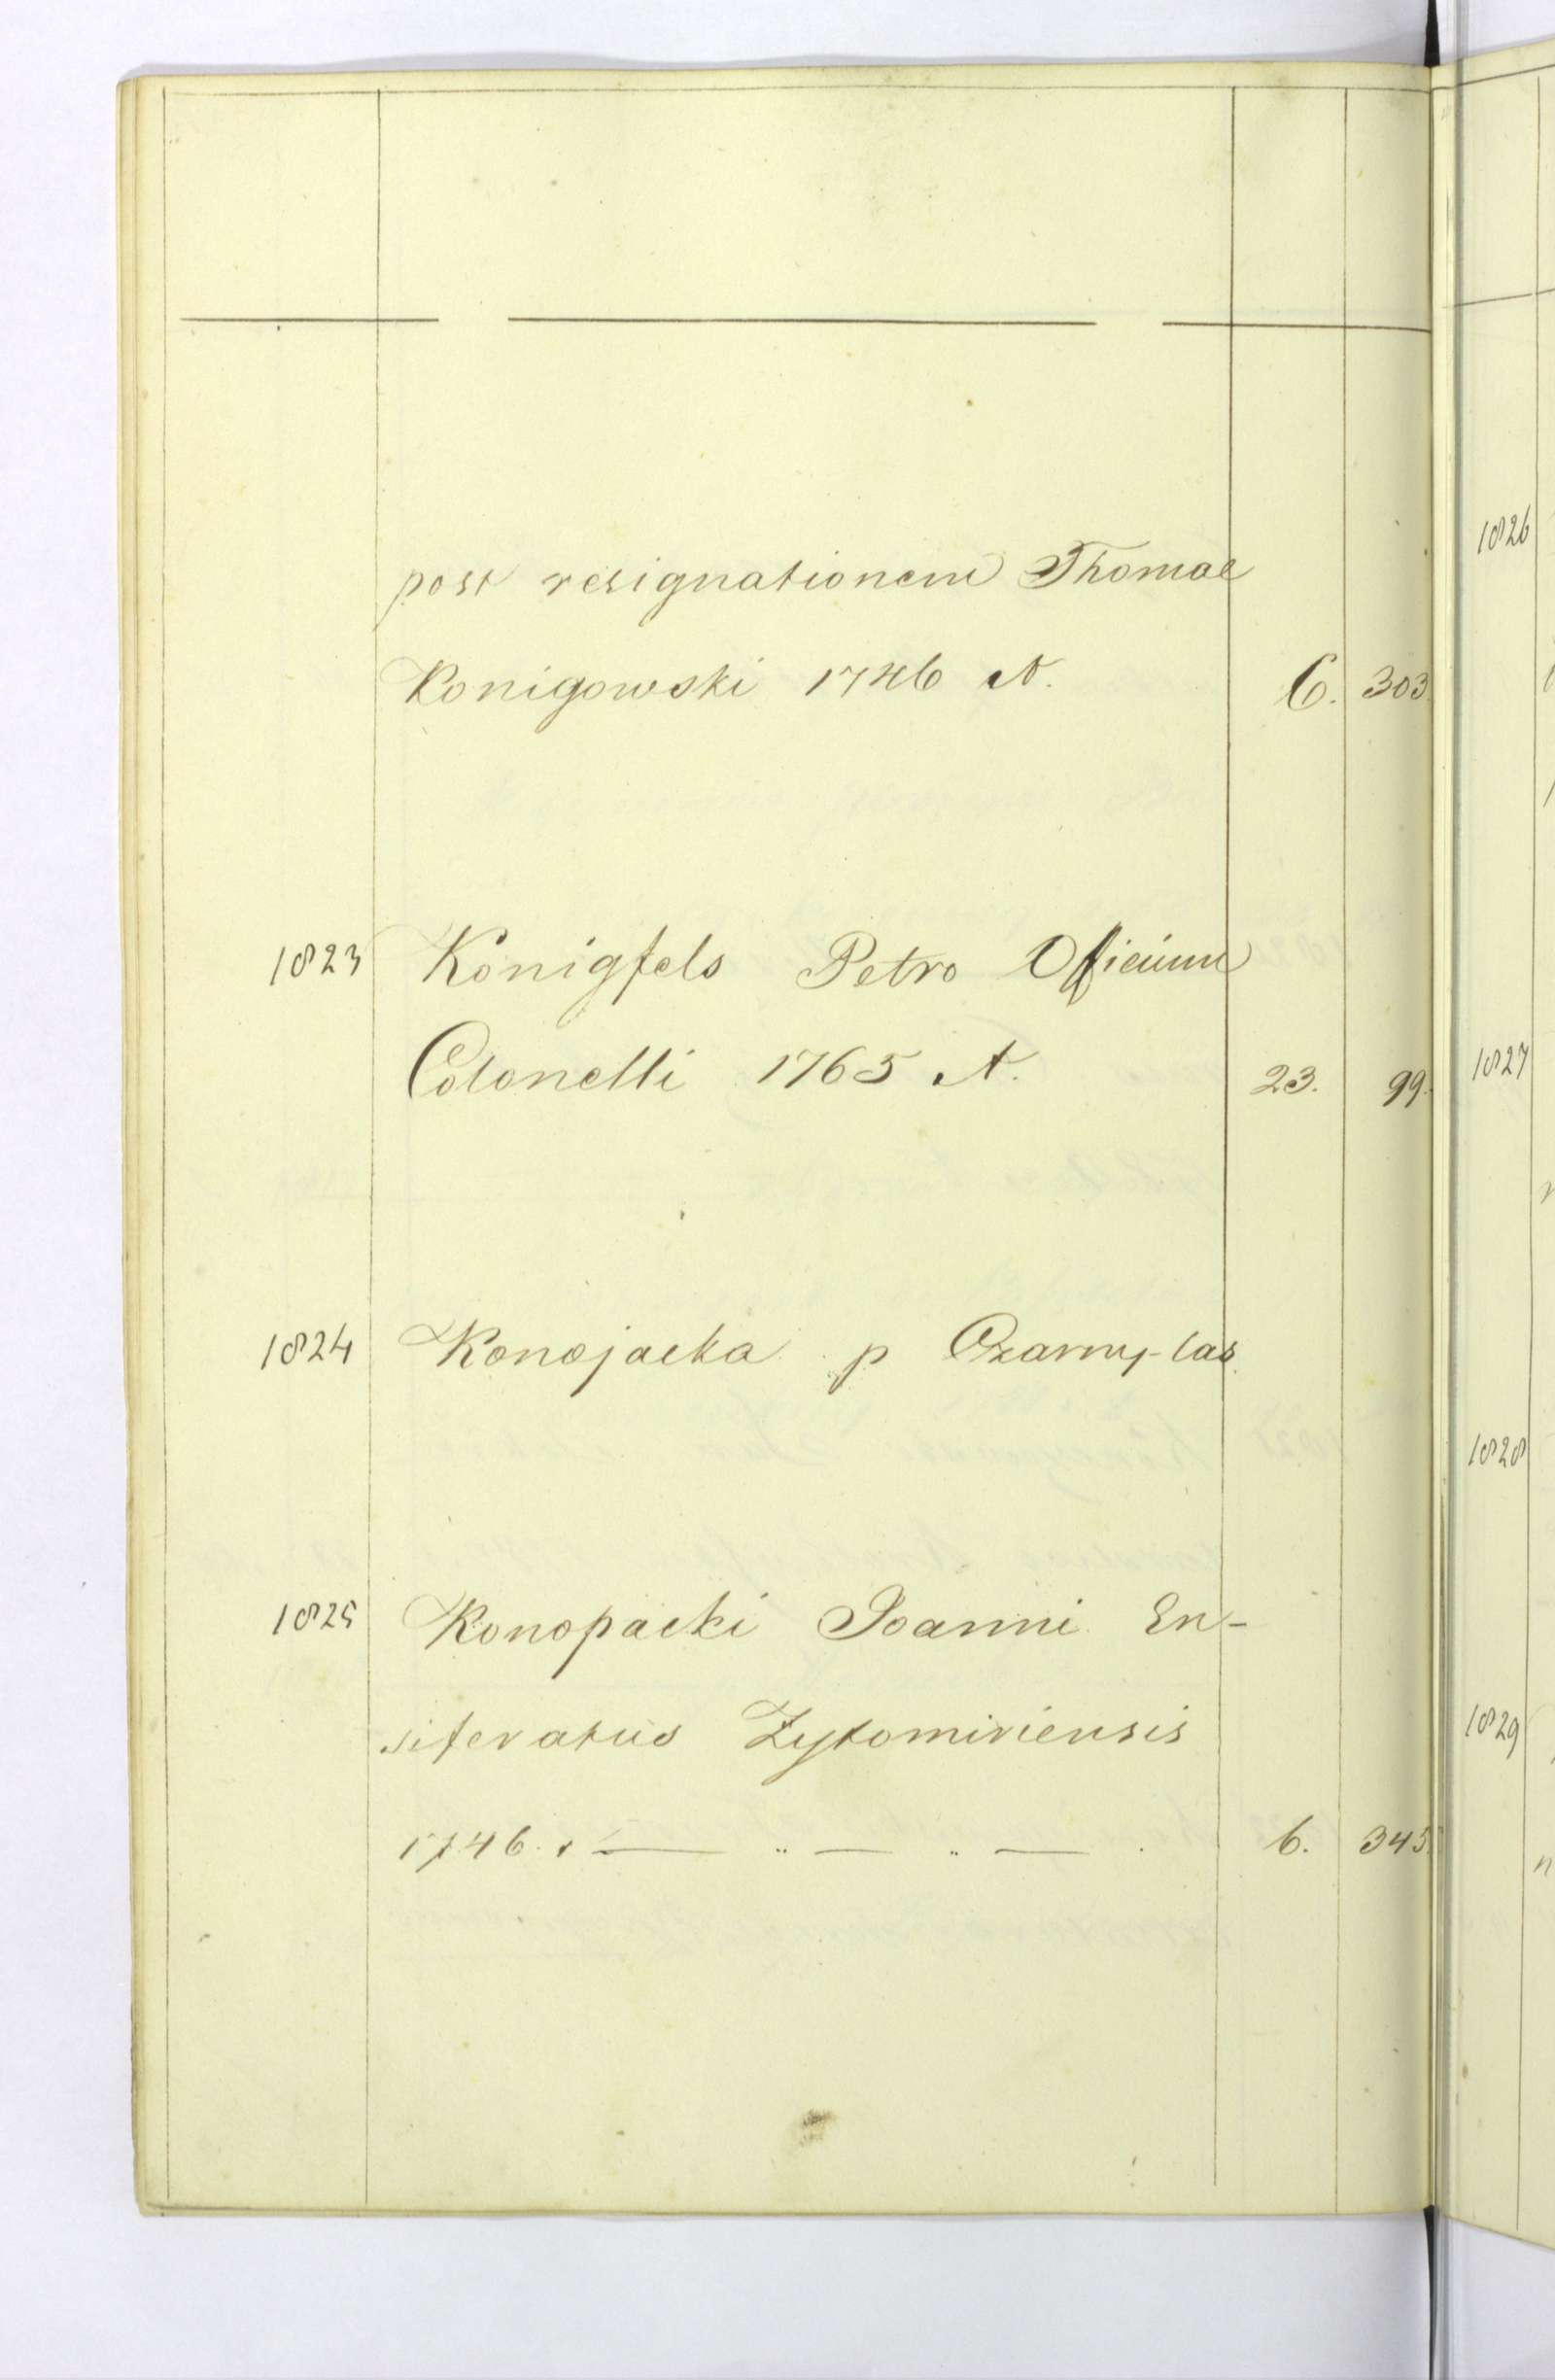 post resignationem Thomae
Konigowski 1746 A. 6. 303.
1823 Königfels Petro Officium
Colonelli 1765 A. 23. 99.
1824 Konojacka p Czarny-las
1825 Konopacki Joanni En-
siferatus Zytomiriensis
1746. — „ — „ — . 6. 345.
1826
1827
1828
1829